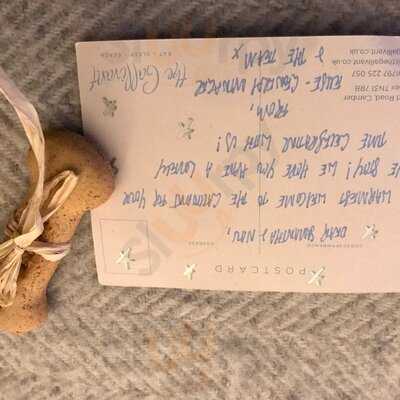 POSTCARD
CORRESPONDENCE
ADDRESS
DEAR SAMANTHA & NOW,
WARMEST WELCOME TO THE GALLIVANT FOR YOUR
STAY! WE HOPE YOU HAVE A LOVELY
TIME CELEBRATING WITH US!
FROM,
& THE TEAM x
the Gallivant
EAT • SLEEP • BEACH
Road, Camber
TN31 7RB
01797 225 057
thegallivant.co.uk
gallivant.co.uk